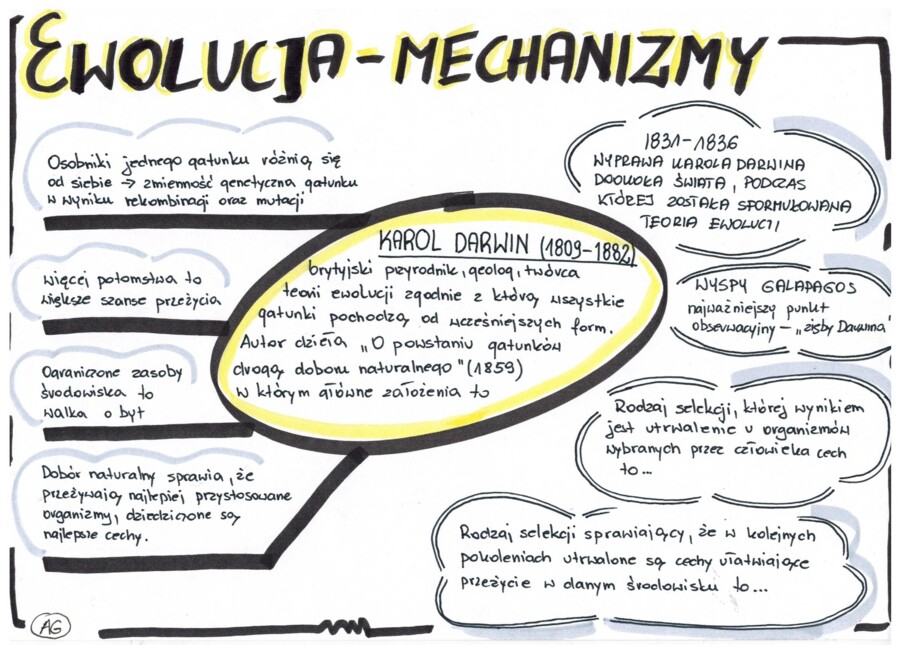 EWOLUCJA - MECHANIZMY
Osobniki jednego gatunku różnią się
od siebie → zmienność genetyczna gatunku
w wyniku rekombinacji oraz mutacji
Więcej potomstwa to
większe szanse przeżycia
Ograniczone zasoby
środowiska to
walka o byt
Dobór naturalny sprawia, że
przeżywają najlepiej przystosowane
organizmy, dziedziczone są
najlepsze cechy.
KAROL DARWIN (1809-1882)
brytyjski przyrodnik, geolog, twórca
teorii ewolucji zgodnie z którą wszystkie
gatunki pochodzą od wcześniejszych form.
Autor dzieła „O powstaniu gatunków
drogą doboru naturalnego" (1859)
w którym główne założenia to
1831-1836
WYPRAWA KAROLA DARWINA
DOOKOŁA ŚWIATA, PODCZAS
KTÓREJ ZOSTAŁA SFORMUŁOWANA
TEORIA EWOLUCJI
WYSPY GALAPAGOS
najważniejszy punkt
obserwacyjny - „zięby Darwina"
Rodzaj selekcji, której wynikiem
jest utrwalenie u organizmów
wybranych przez człowieka cech
to...
Rodzaj selekcji sprawiający, że w kolejnych
pokoleniach utrwalone są cechy ułatwiające
przeżycie w danym środowisku to...
AG